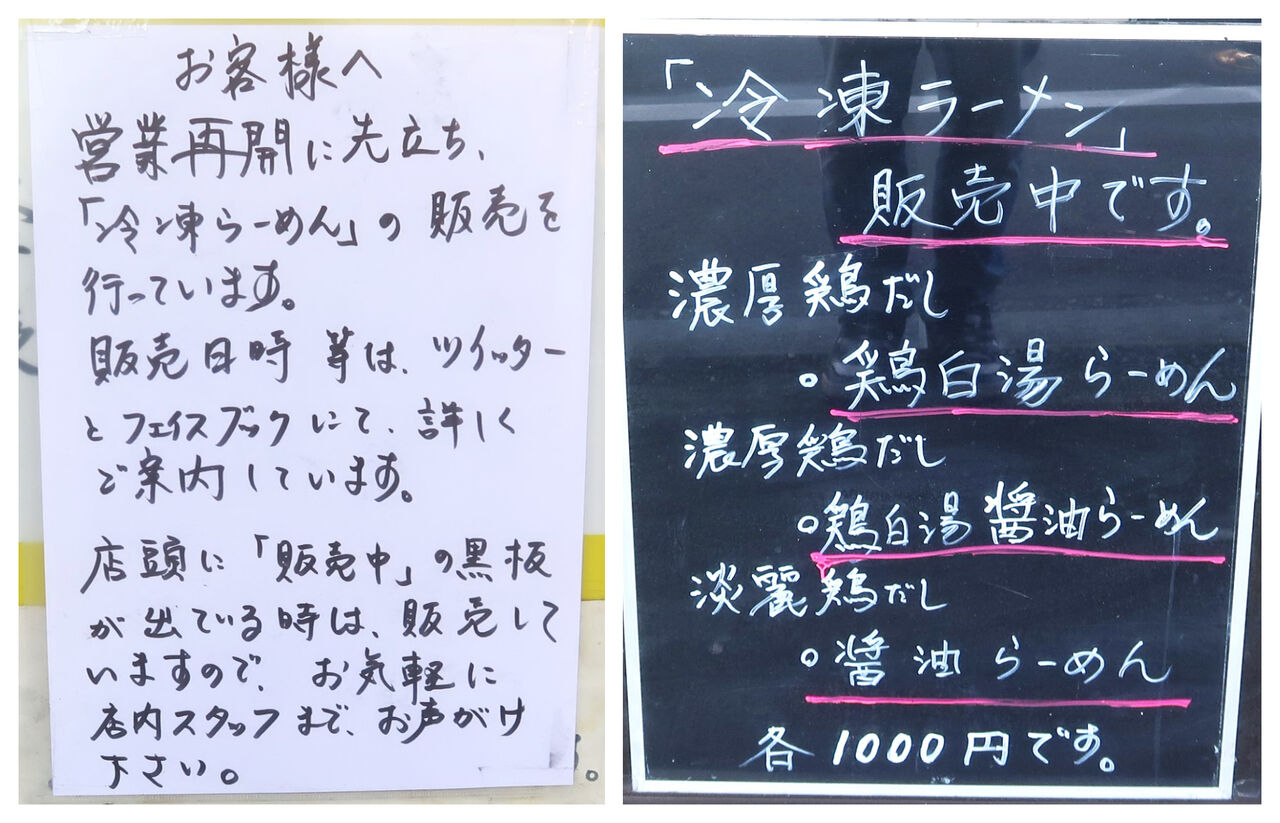 お客様へ
営業再開に先立ち、
「冷凍らーめん」の販売を
行っています。
販売日時等は、ツイッター
とフェイスブックにて、詳しく
ご案内しています。
店頭に「販売中」の黒板
が出ている時は、販売して
いますので、お気軽に
店内スタッフまで、お声がけ
下さい。
「冷凍ラーメン」
販売中です。
濃厚鶏だし
。鶏白湯らーめん
濃厚鶏だし
。鶏白湯醤油らーめん
淡麗鶏だし
。醤油らーめん
各1000円です。